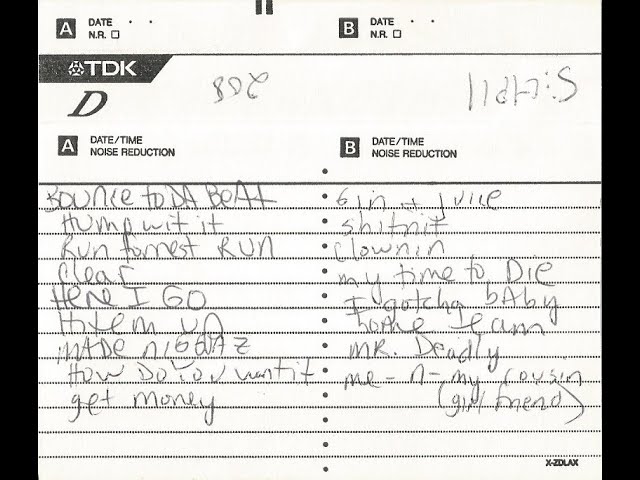 A DATE · ·
N.R. □
B DATE · ·
N.R. □
TDK
D
208
A DATE/TIME
NOISE REDUCTION
B DATE/TIME
NOISE REDUCTION
BOUNCE to DA BEAt
Hump wit it
Run forrest RUN
Clear
Here I GO
Hit em up
MADE NIGGAZ
How Do You want it
get money
Gin + juice
shitnit
Clownin
my time to Die
I gotcha bAby
home team
MR. Deadly
me-n-my cousin
(girl friend)
X-ZDLAX